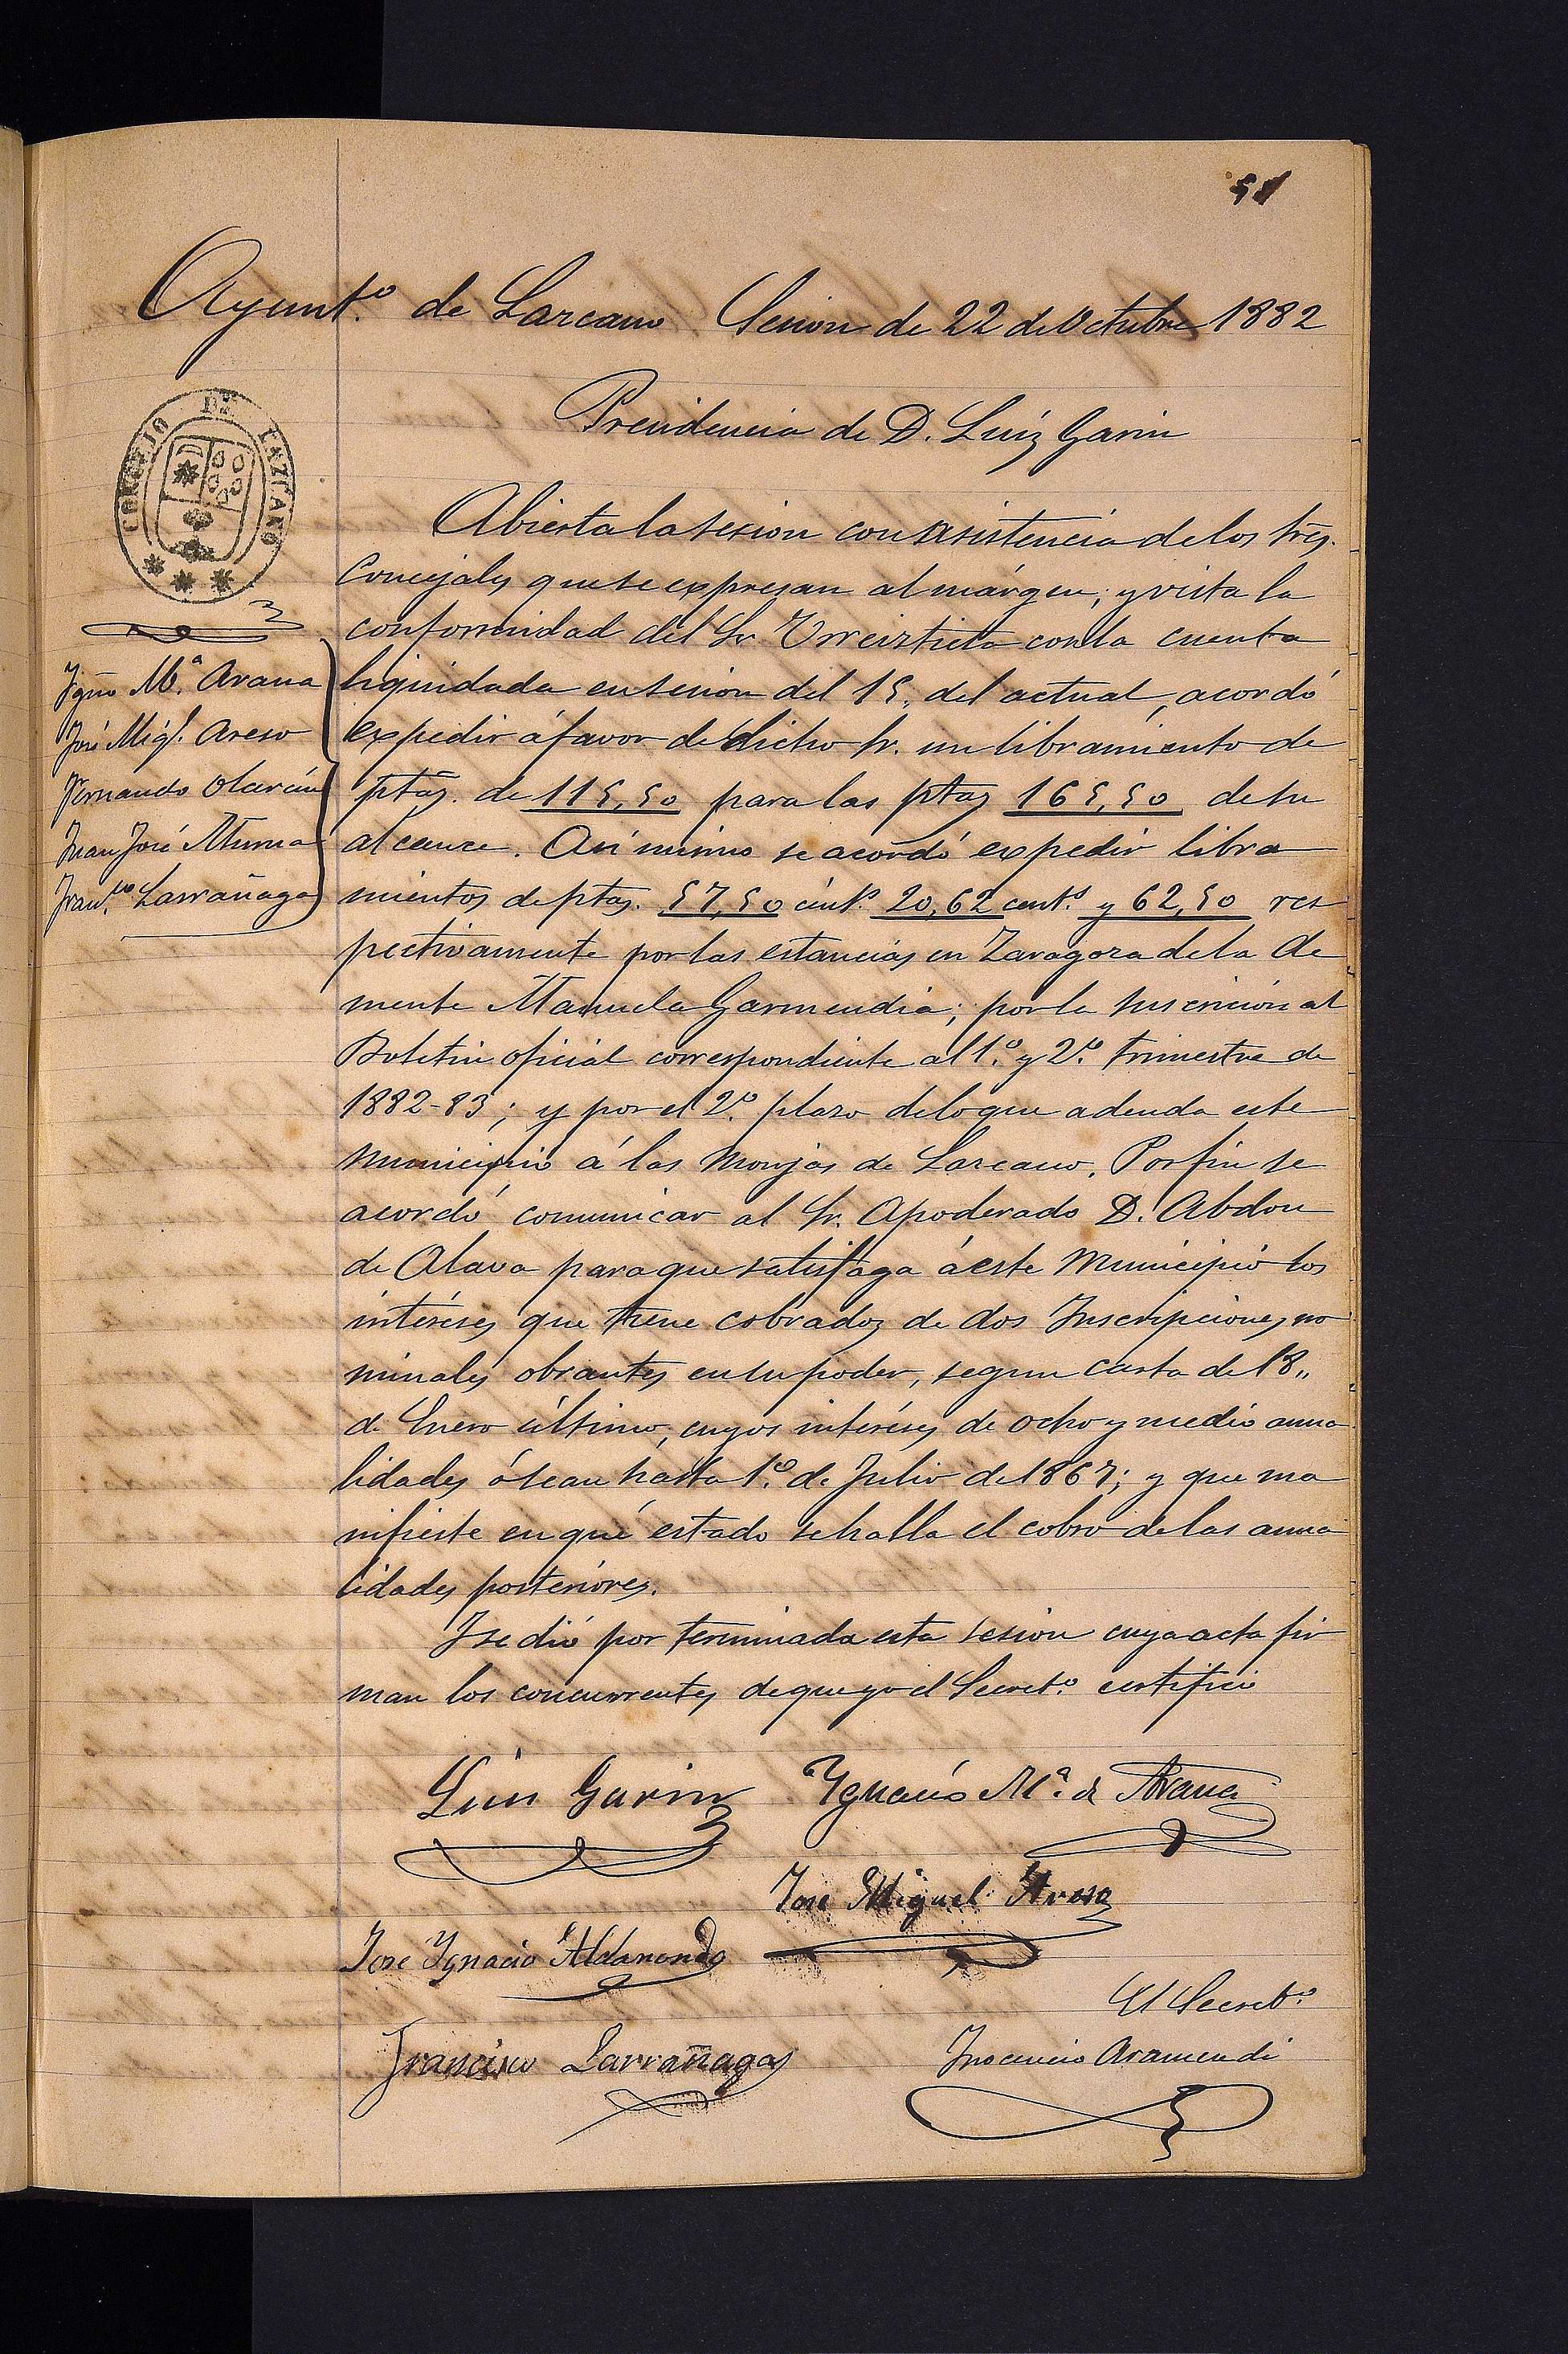 51
Ayunt.º de Lazcano Sesion de 22 de Octubre 1882
CONCEJO DE LAZCANO
Presidencia de D. Luiz Garin
Ygn.º M.ª Arana
José Mig.l Areso
Fernando Olarán
Juan José Muma
Fran.co Larrañaga
Abierta la sesion con asistencia de los Sres.
Concejales que se expresan al márgen; y vista la
conformidad del Sr. Urreiztieta con la cuenta
liquidada en sesion del 15, del actual, acordó
expedir á favor de dicho Sr. un libramiento de
ptas. de 115,50 para las ptas 165,50 de su
alcance. Asi mismo se acordó expedir libra
mientos de ptas. 57,50 cént.s 20,62 cent.s y 62,50 res
pectivamente por las estancias en Zaragoza de la de
mente Manuela Garmendia; por la suscricion al
Boletin oficial correspondiente al 1.º y 2.º trimestre de
1882-83; y por el 2.º plazo de lo que adeuda este
Municipio á las Monjas de Lazcano. Por fin se
acordó comunicar al Sr. Apoderado D. Abdon
de Alava para que satisfaga á este Municipio los
intéreses que tiene cobrados de dos Inscripciones no
minales obrantes en su poder, segun carta de 18,,
de Enero último, cuyos intéreses de ocho y medio anua
lidades ó sean hasta 1.º de Julio de 1867; y que ma
nifieste en qué estado se halla el cobro de las anua
lidades posteriores.
Y se dió por terminada esta sesion cuya acta fir
man los concurrentes de que yo el Secret.º certifico
Luis Garin Ygnacio M.ª de Arana
José Miguel Areso
Jose Ygnacio Aldanondo
El Secret.º
Francisco Larrañaga Inocencio Aramendi